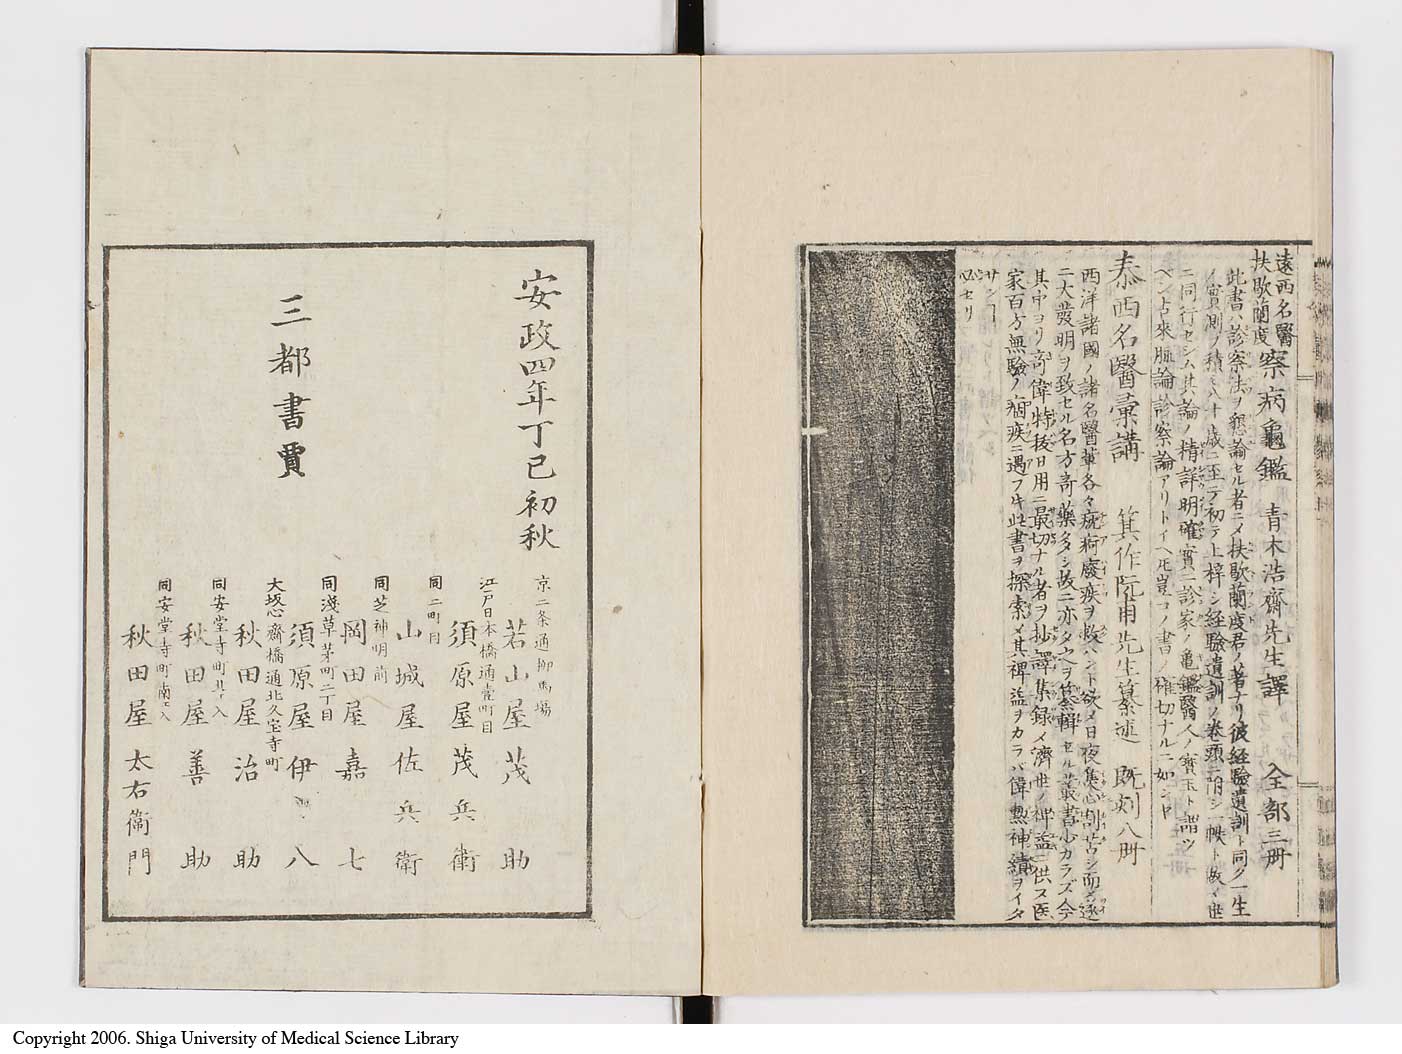 遠西名醫
扶歇蘭度
察病龜鑑　青木浩齋先生譯　全部三冊
此書ハ診察法ヲ懇論セル者ニメ扶歇蘭度君ノ著ナリ彼經驗遺訓ト同ク一生
ノ實測ヲ積ミ八十歳ニ至テ初テ上梓シ經驗遺訓ノ卷頭ニ附シ一帙ト做メ世
ニ同行セシム其論ノ精詳明確實ニ診家ノ龜鑑醫人ノ寶玉ト謂ツ
ベシ古來脈論診察論アリトイヘ𪜈豈コノ書ノ確切ナルニ如ンヤ
泰西名醫彙講　箕作阮甫先生纂述　既刻八冊
西洋諸國ノ諸名醫輩各々疣痾廢疾ヲ救ハント欲メ日夜焦心刻苦シ而シ遂
ニ大發明ヲ致セル名方奇藥多シ故ニ亦タ之ヲ纂輯セル叢書少カラズ今
其中ヨリ奇偉特抜日用ニ最切ナル者ヲ抄譯集録メ濟世ノ裨益ニ供ス医
家百方無驗ノ痼疾ニ遇フ𪜈此書ヲ探索メ其裨益ヲカラバ偉勲神績ヲイタ
サンー
必セリ
安政四年丁巳初秋
三都書賈
京二条通柳馬場
若山屋茂助
江戸日本橋通壹町目
須原屋茂兵衛
同二町目
山城屋佐兵衛
同芝神明前
岡田屋嘉七
同淺草茅町二丁目
須原屋伊八
大坂心齋橋通北久宝寺町
秋田屋治助
同安堂寺町北ヘ入
秋田屋善助
同安堂寺町南ヘ入
秋田屋太右衛門
Copyright 2006. Shiga University of Medical Science Library